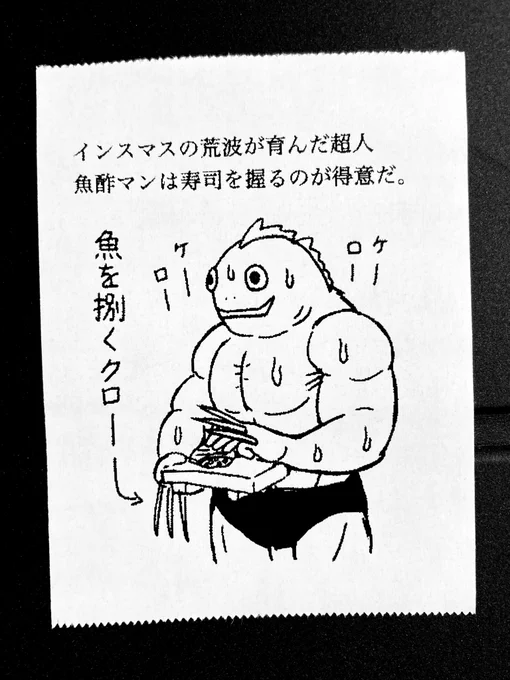 インスマスの荒波が育んだ超人
魚酢マンは寿司を握るのが得意だ。
魚を捌くクロー
ケロー
ケロー